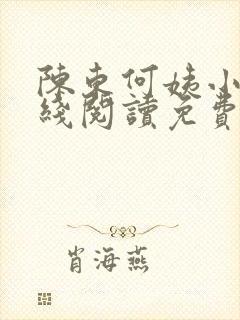 陳東何姨小
綫閱讀免費
肖海燕